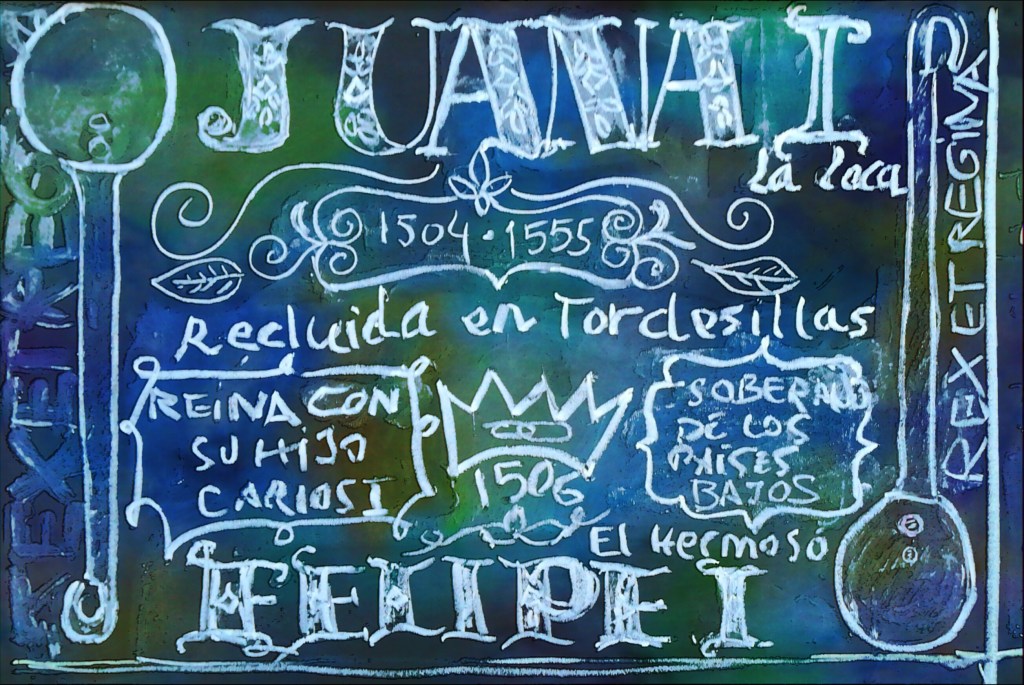 JUANA I
La Loca
1504 · 1555
Recluida en Tordesillas
REINA CON
SU HIJO
CARLOS I
1506
SOBERANO
DE LOS
PAÍSES
BAJOS
El Hermoso
FELIPE I
REX ET REGINA
REX ET